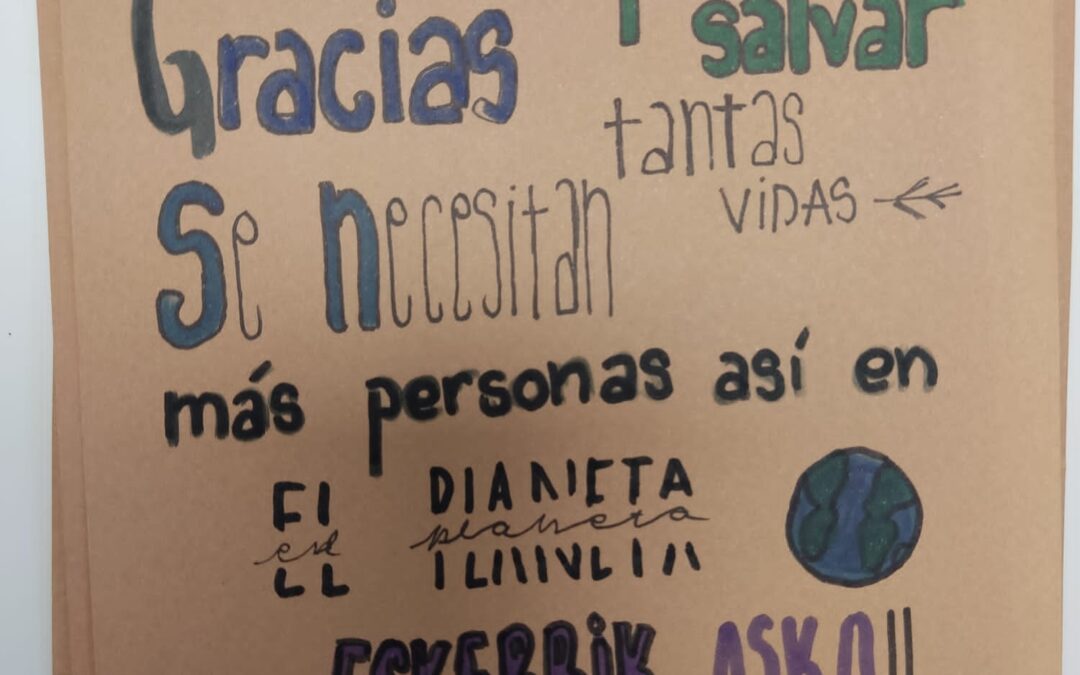 Gracias
salvar
tantas
VIDAS
Se necesitan
más personas así en
EL PLANETA
el planeta
ESKERRIK ASKO!!